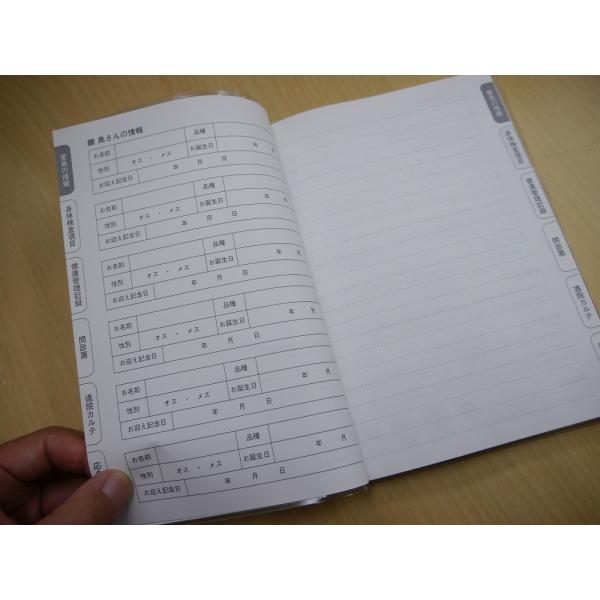 ■ 鳥さんの情報
お名前 品種
性別 オス ・ メス お誕生日 年
お迎え記念日 年 月 日
お名前 品種
性別 オス ・ メス お誕生日 年
お迎え記念日 年 月 日
お名前 品種
性別 オス ・ メス お誕生日 年
お迎え記念日 年 月 日
お名前 品種
性別 オス ・ メス お誕生日 年 月
お迎え記念日 年 月 日
お名前 品種
性別 オス ・ メス お誕生日 年 月
お迎え記念日 年 月 日
お名前 品種
性別 オス ・ メス お誕生日 年 月
お迎え記念日 年 月 日
愛鳥の情報
身体検査項目
健康管理記録
問診票
通院カルテ
応
愛鳥の情報
身体検査項目
健康管理記録
問診票
通院カルテ